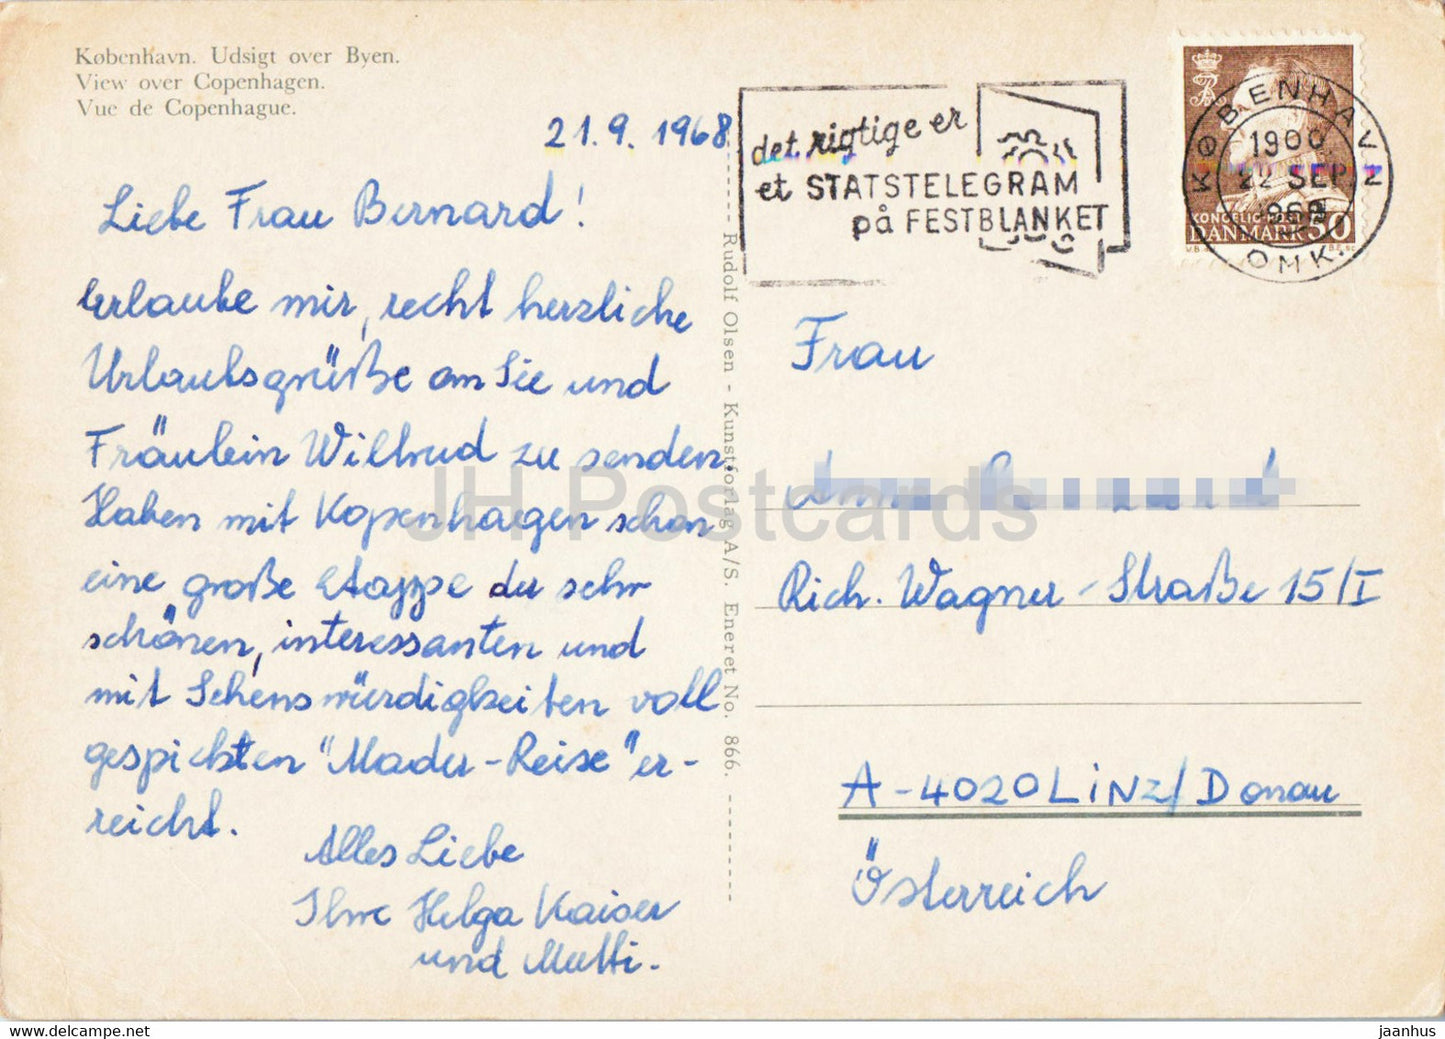 København. Udsigt over Byen.
View over Copenhagen.
Vue de Copenhague.
21.9.1968
Liebe Frau Bernard!
Erlaube mir, recht herzliche
Urlaubsgrüße an Sie und
Fräulein Wiltrud zu senden.
Haben mit Kopenhagen schon
eine große Etappe der sehr
schönen, interessanten und
mit Sehenswürdigkeiten voll
gespickten "Mader-Reise" er-
reicht.
Alles Liebe
Ihre Helga Kaiser
und Mutti.
Rudolf Olsen - Kunstforlag A/S. Eneret No. 866.
det rigtige er
et STATSTELEGRAM
på FESTBLANKET
KØBENHAVN
22 SEP
OMK.
KONGELIG POST
DANMARK 50
Frau
Rich. Wagner-Straße 15/I
A-4020 LINZ/Donau
Österreich
JH Postcards
https://www.ansichtskartenversand.com/
jaanhus